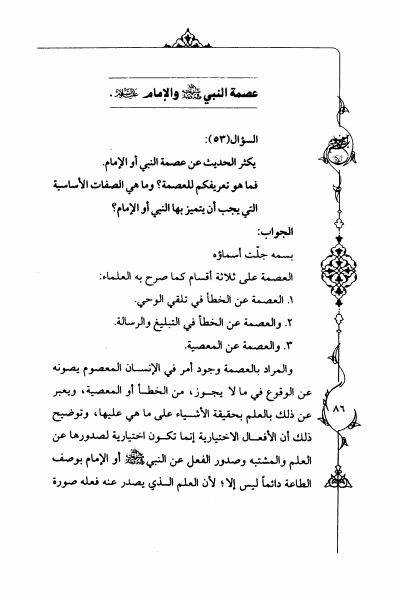 عصمة النبي ﷺ والإمام عليه السلام.
السؤال(٥٣):
يكثر الحديث عن عصمة النبي أو الإمام.
فما هو تعريفكم للعصمة؟ وما هي الصفات الأساسية
التي يجب أن يتميز بها النبي أو الإمام؟
الجواب:
بسمه جلّت أسماؤه
العصمة على ثلاثة أقسام كما صرح به العلماء:
١. العصمة عن الخطأ في تلقي الوحي.
٢. والعصمة عن الخطأ في التبليغ والرسالة.
٣. والعصمة عن المعصية.
والمراد بالعصمة وجود أمر في الإنسان المعصوم يصونه
عن الوقوع في ما لا يجوز، من الخطأ أو المعصية، ويعبر
عن ذلك بالعلم بحقيقة الأشياء على ما هي عليها، وتوضيح
ذلك أن الأفعال الاختيارية إنما تكون اختيارية لصدورها عن
العلم والمشتبه وصدور الفعل عن النبي ﷺ أو الإمام بوصف
الطاعة دائماً ليس إلا؛ لأن العلم الذي يصدر عنه فعله صورة
٨٦